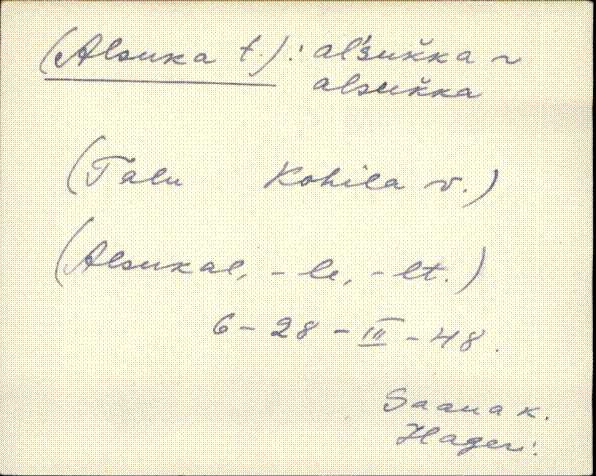 (Alsuka t.): al'šuǩka ~
alsuǩka
(Talu Kohila v.)
(Alsukal, -le, -lt.)
6-28-III-48.
Saanak.
Hageri.